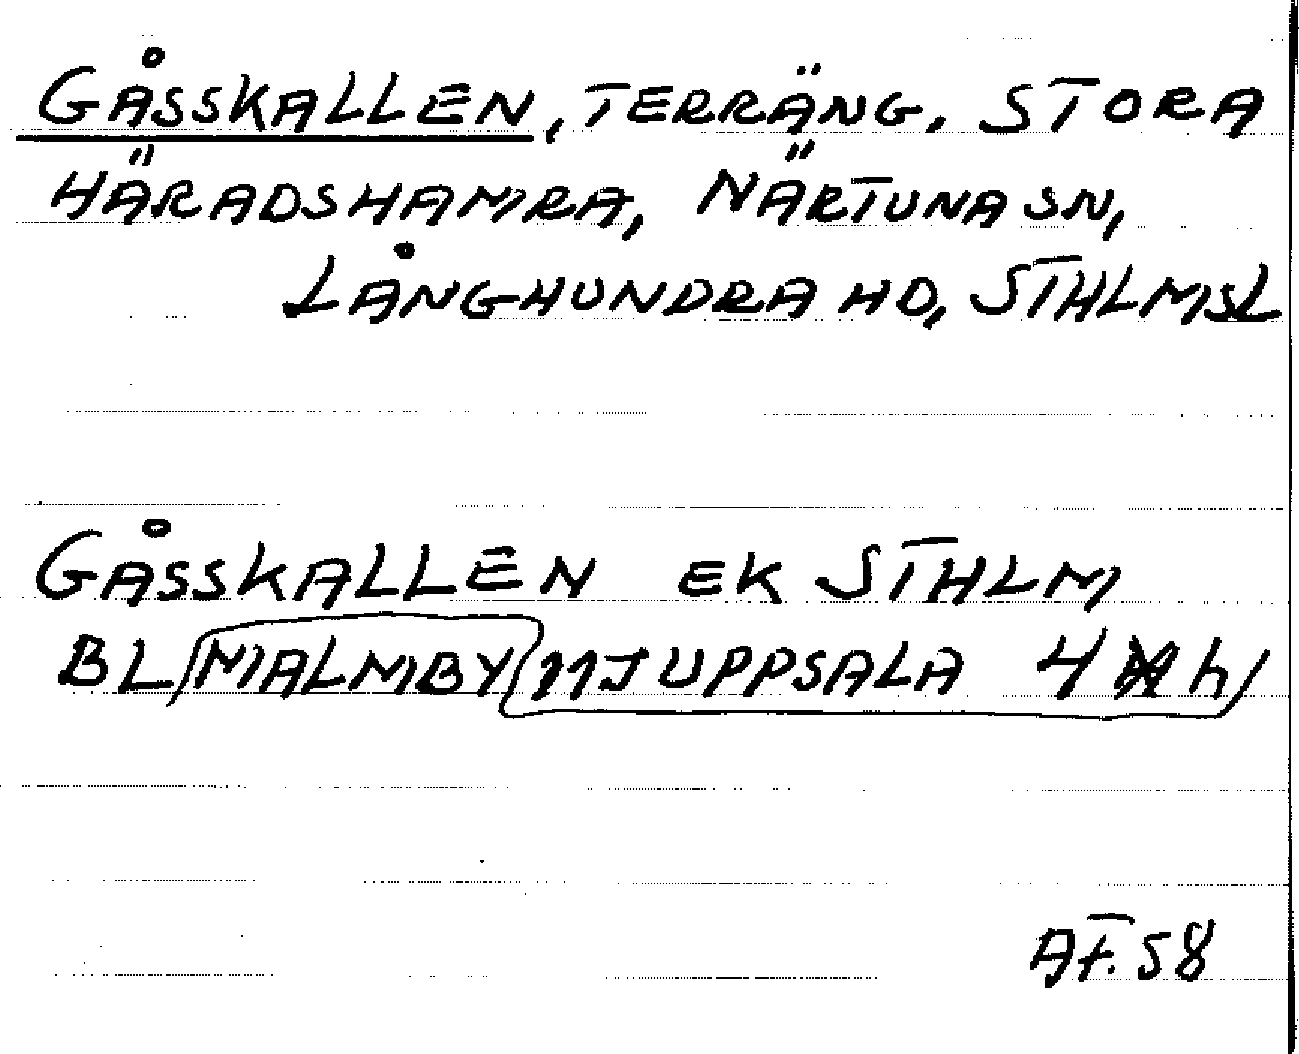 GÅSSKALLEN, TERRÄNG, STORA
HÄRADSHAMRA, NÄRTUNA SN,
LÅNGHUNDRA HD, STHLMSL
GÅSSKALLEN EK STHLM
BL MALMBY 11J UPPSALA 4 h
AF. 58